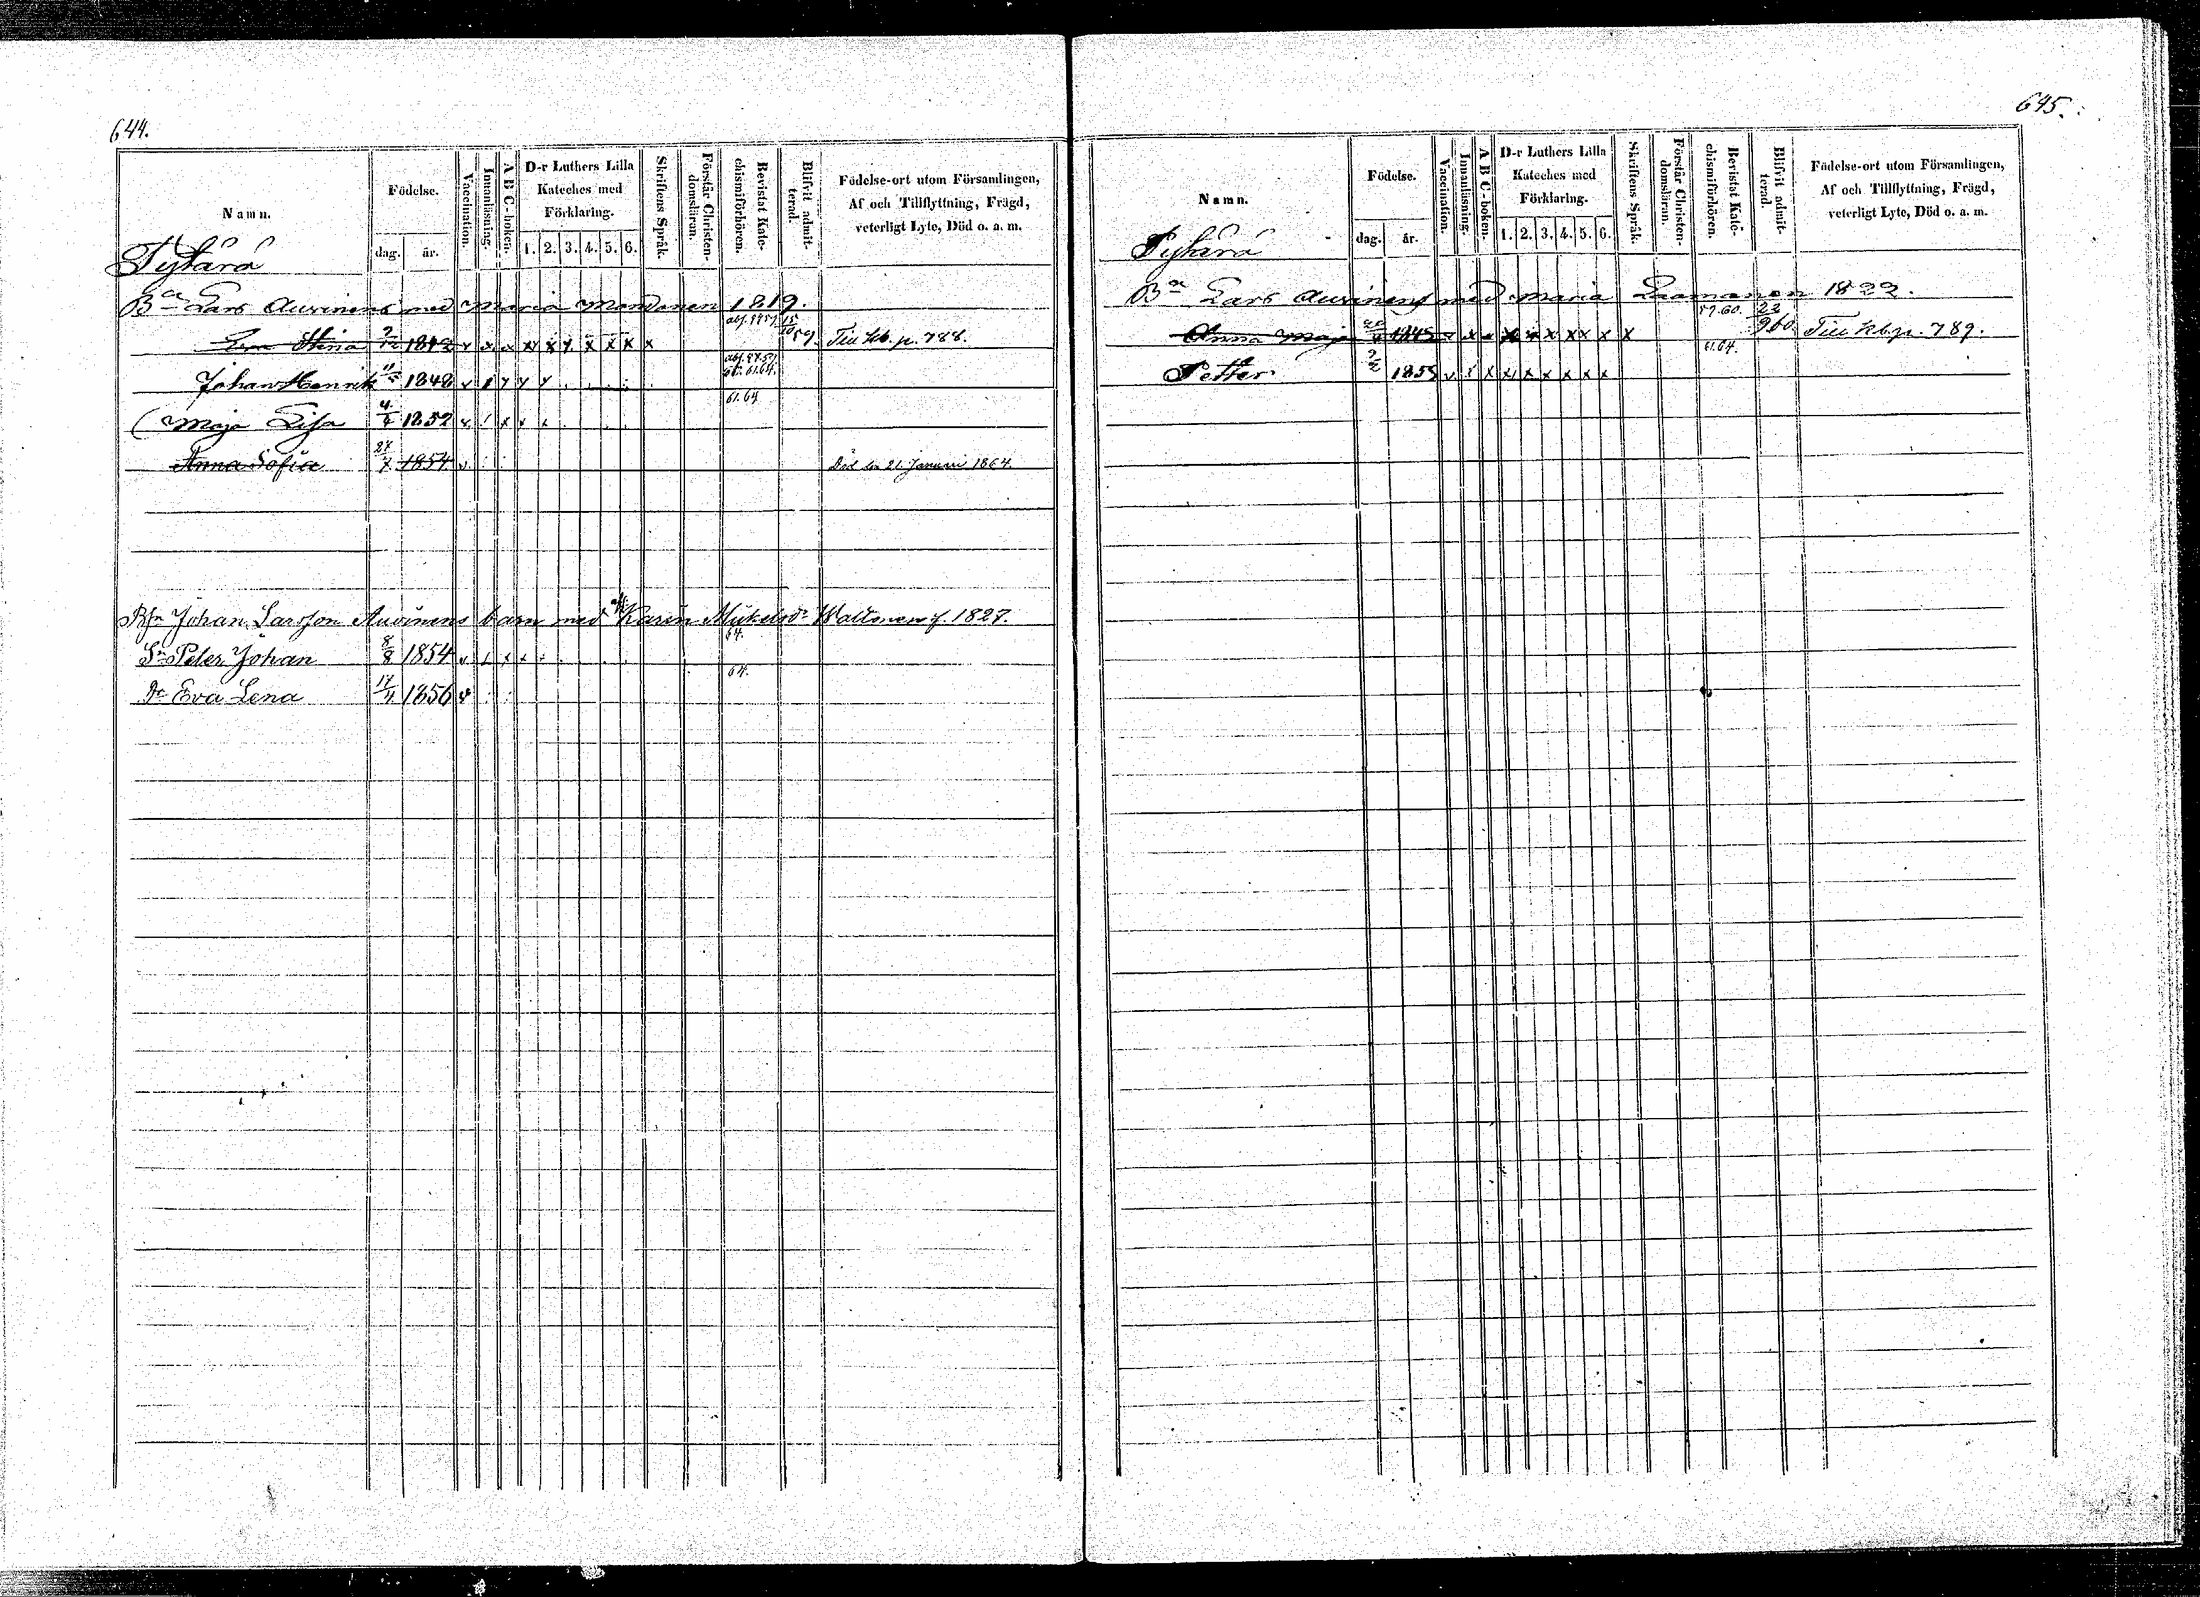 644.
Namn. Födelse. dag. år. Vaccination. Innanläsning. A B C-boken. D-r Luthers Lilla Kateches med Förklaring. 1. 2. 3. 4. 5. 6. Skriftens Språk. Förstår Christendomsläran. Bevistat Katechismiförhören. Blifvit admitterad. Födelse-ort utom Församlingen, Af och Tillflyttning, Frägd, veterligt Lyte, Död o. a. m.
Lars Auvinens med Maria Manninen 1819.
Stina 1842 x x x x x x x x x x 15/10 59. Till kb. p. 788.
Johan Henrik 1848 61.64.
Maja Lisa 4/4 1852 61.64
Anna Sofia 24/7 1854 Död den 21 Januari 1864.
Johan Larsson Auvinens barn med Karin Mickelsdr f. 1827.
Sn Peter Johan 8/8 1854 64.
Dr Eva Lena 1856 64.
645.
Namn. Födelse. dag. år. Vaccination. Innanläsning. A B C-boken. D-r Luthers Lilla Kateches med Förklaring. 1. 2. 3. 4. 5. 6. Skriftens Språk. Förstår Christendomsläran. Bevistat Katechismiförhören. Blifvit admitterad. Födelse-ort utom Församlingen, Af och Tillflyttning, Frägd, veterligt Lyte, Död o. a. m.
Lars Auvinens med Maria 1822.
Anna Maja 1845 x x x x x x x x x 59.60. 23/9 60. Till kb. p. 789.
Petter 1855 x x x x x x x x 61.64.